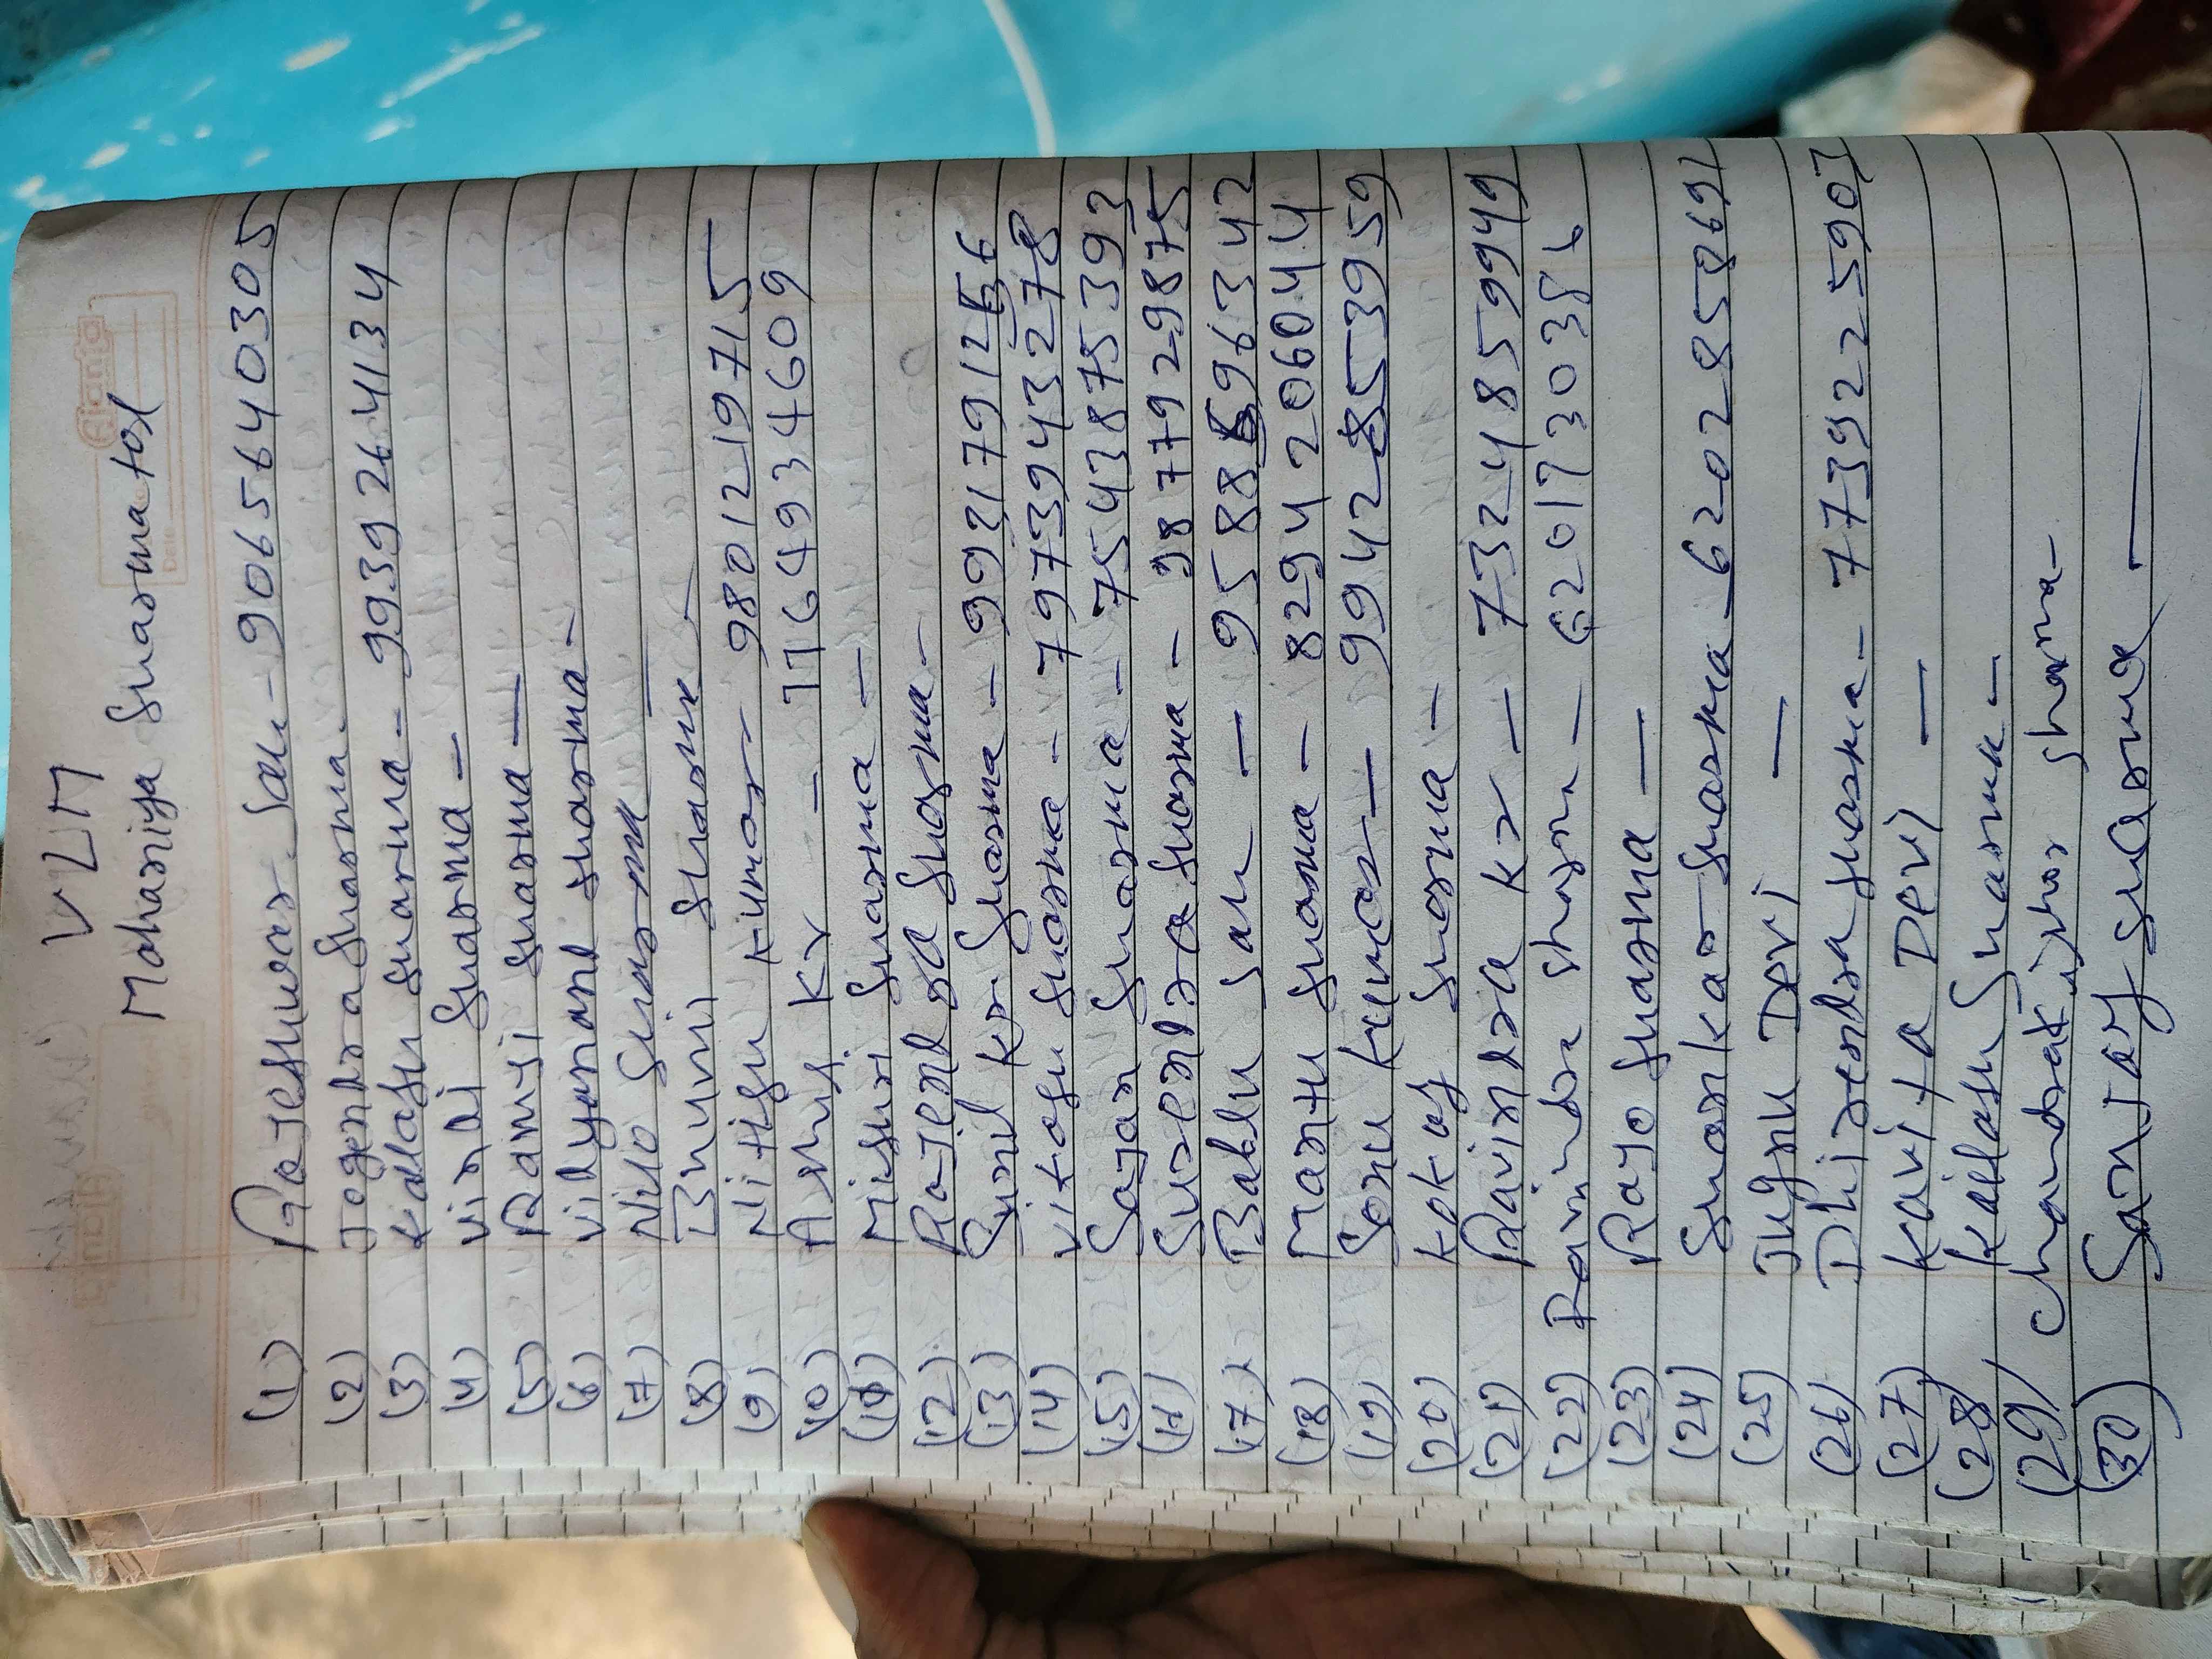 VLM
Mahaniya Sharmatol
(1) Rajeshwar Sah - 9065640305
(2) Jogendra Sharma -
(3) Kailash Sharma - 9939264134
(4) Sharma -
(5) Ramji Sharma -
(6) Vidyanand Sharma -
(7) Sharma -
(8) Sharma -
(9) Nitish Kumar - 9801219715
(10) Kr - 7764934609
(11) Mishri Sharma -
(12) Rajendra Sharma -
(13) Sunil Kr Sharma -
(14) Vikash Sharma - 7973943278
(15) Sajan Sharma - 7543875392
Surendra Sharma - 9877929875
(17) Bablu Sah -
(18) Mantu Sharma - 8294206044
(19) Sonu Kumar - 9942853959
(20) Sharma -
(21) Ravindra Kr - 7324859949
(22) Ravindra Sharma - 6201730386
(23) Rajo Sharma -
(24) Shankar Sharma - 6202858691
(25) Jugnu Devi -
(26) Dhirendra Sharma - 7739225907
(27) Kavita Devi -
(28) Kailash Sharma -
(29) Chandrakishor Sharma -
(30) Sanjay Sharma -
Ejanta
Date